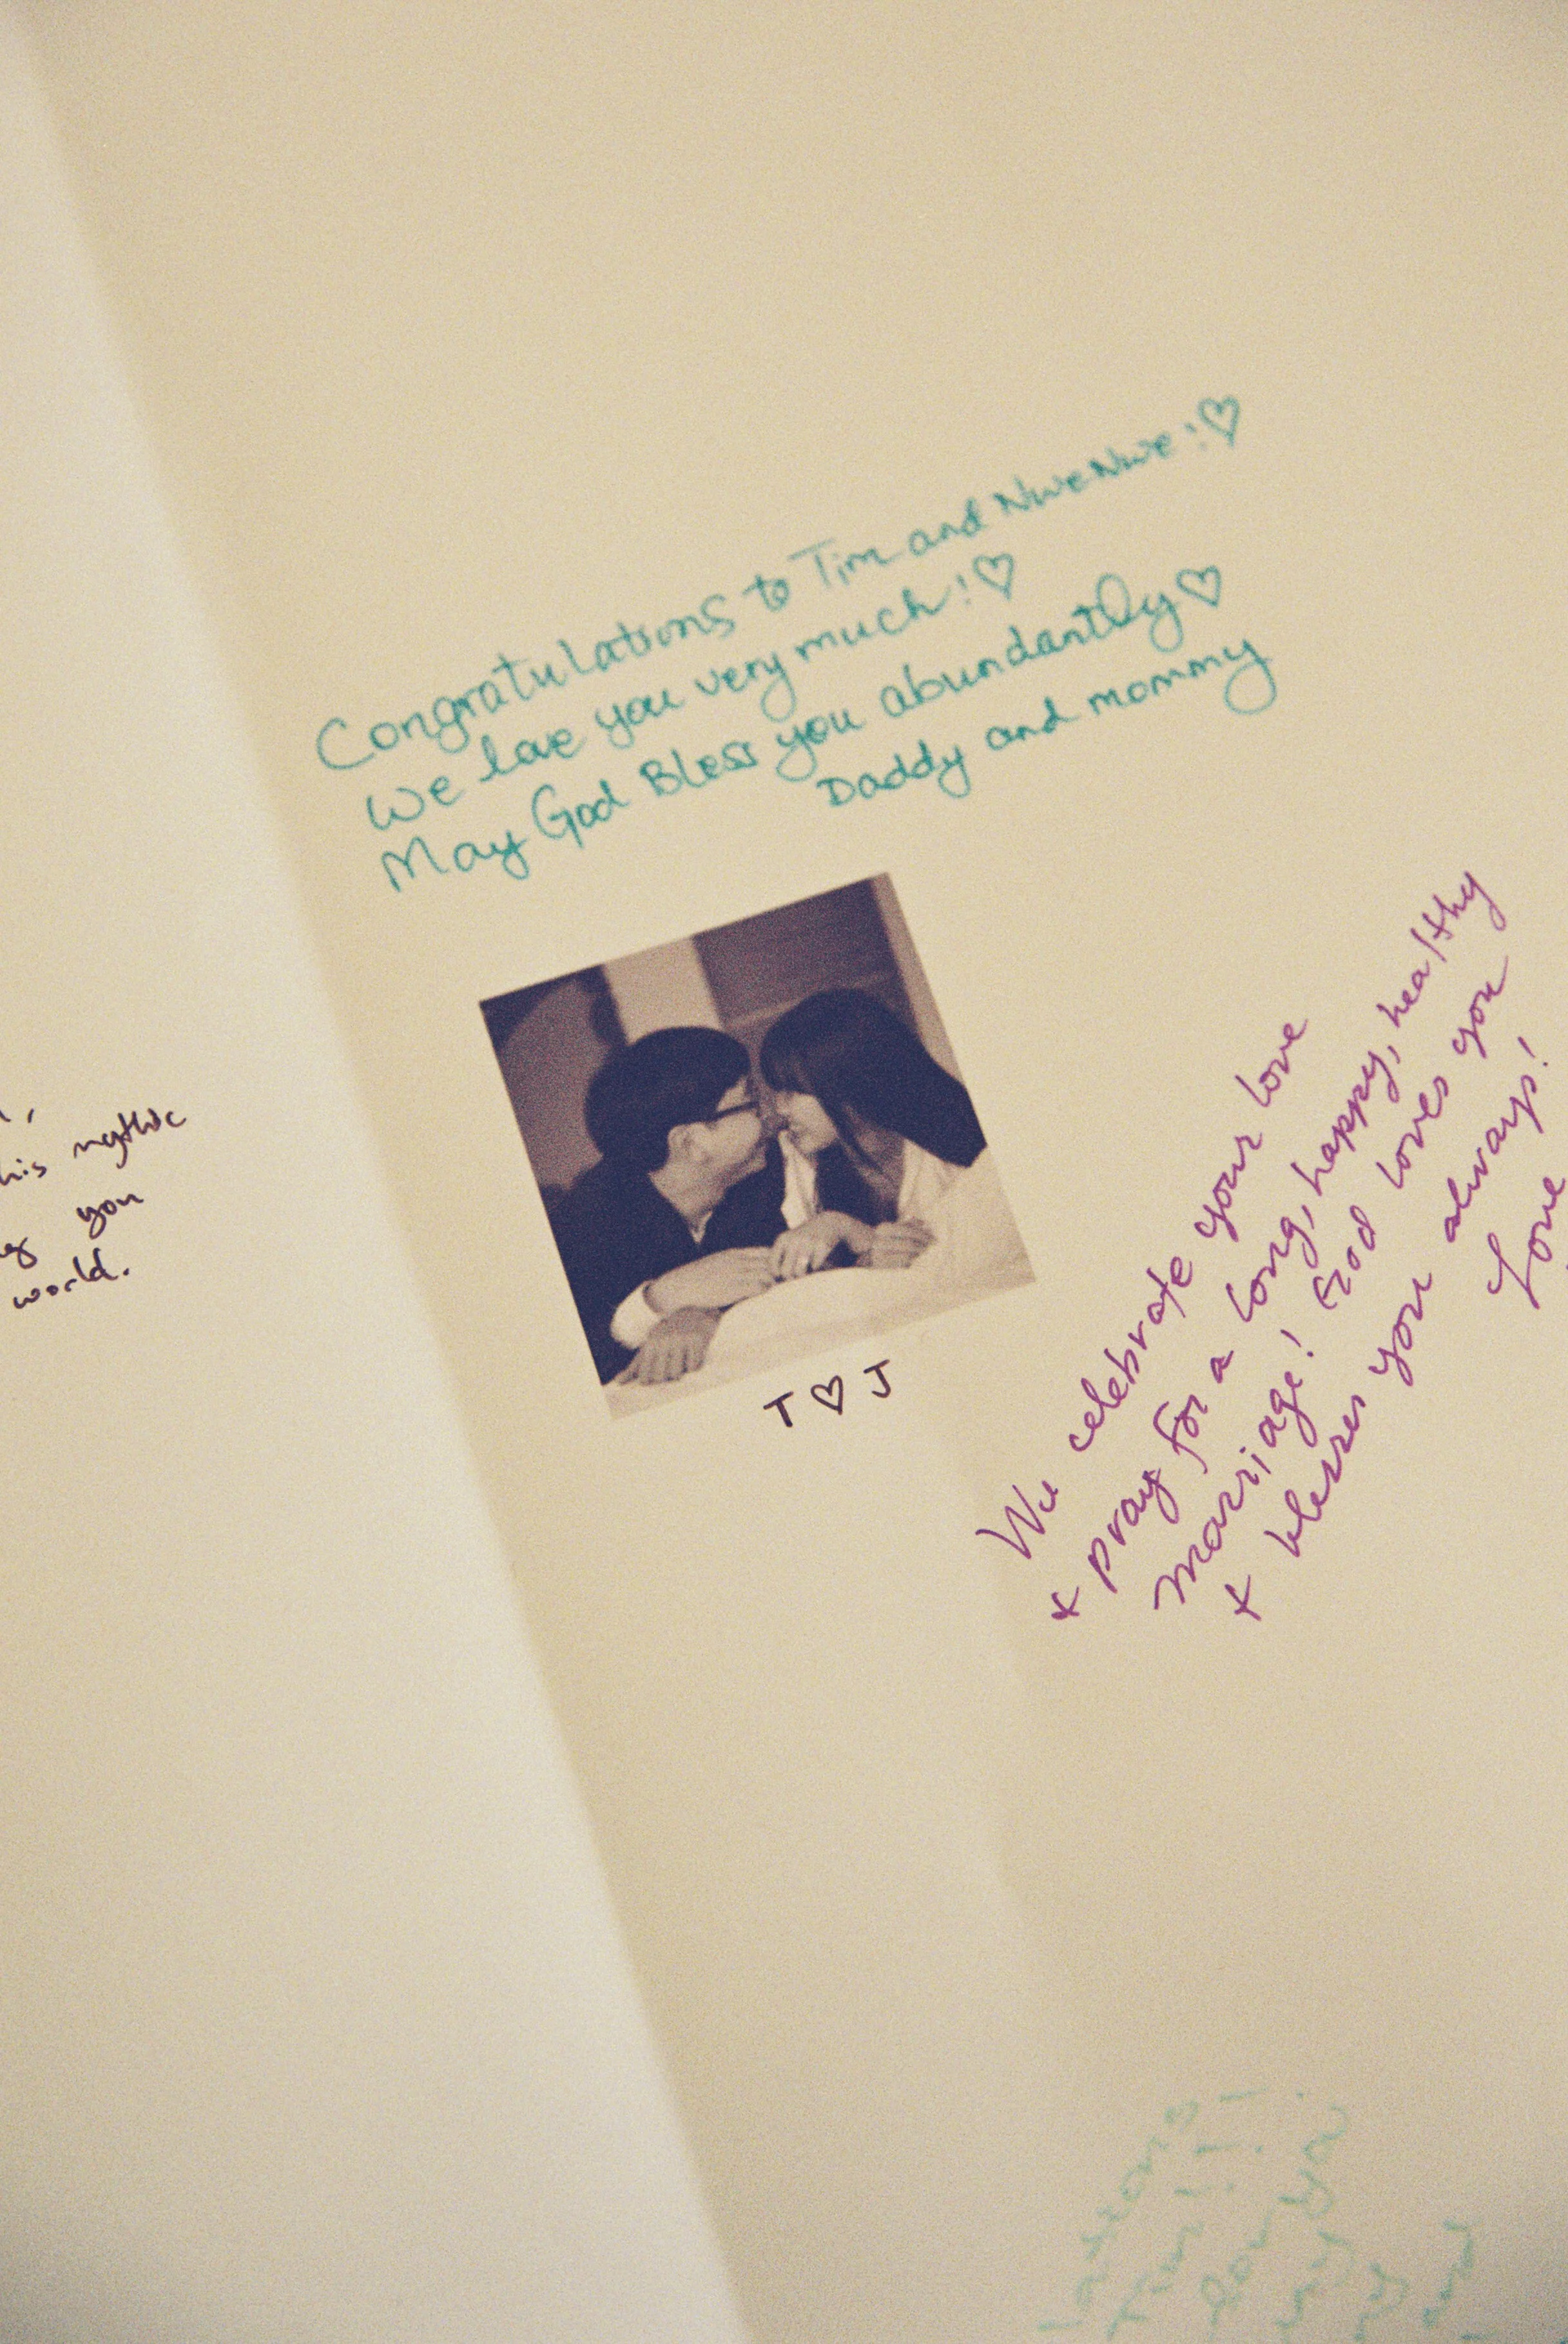 his mythic
you
world.
Congratulations to Tim and NweNwe!♡
We love you very much!♡
May God Bless you abundantly♡
Daddy and mommy
T ♡ J
We celebrate your love
+ pray for a long, happy, healthy
marriage! God loves you
+ blesses you always!
Love
Tim!!!
you